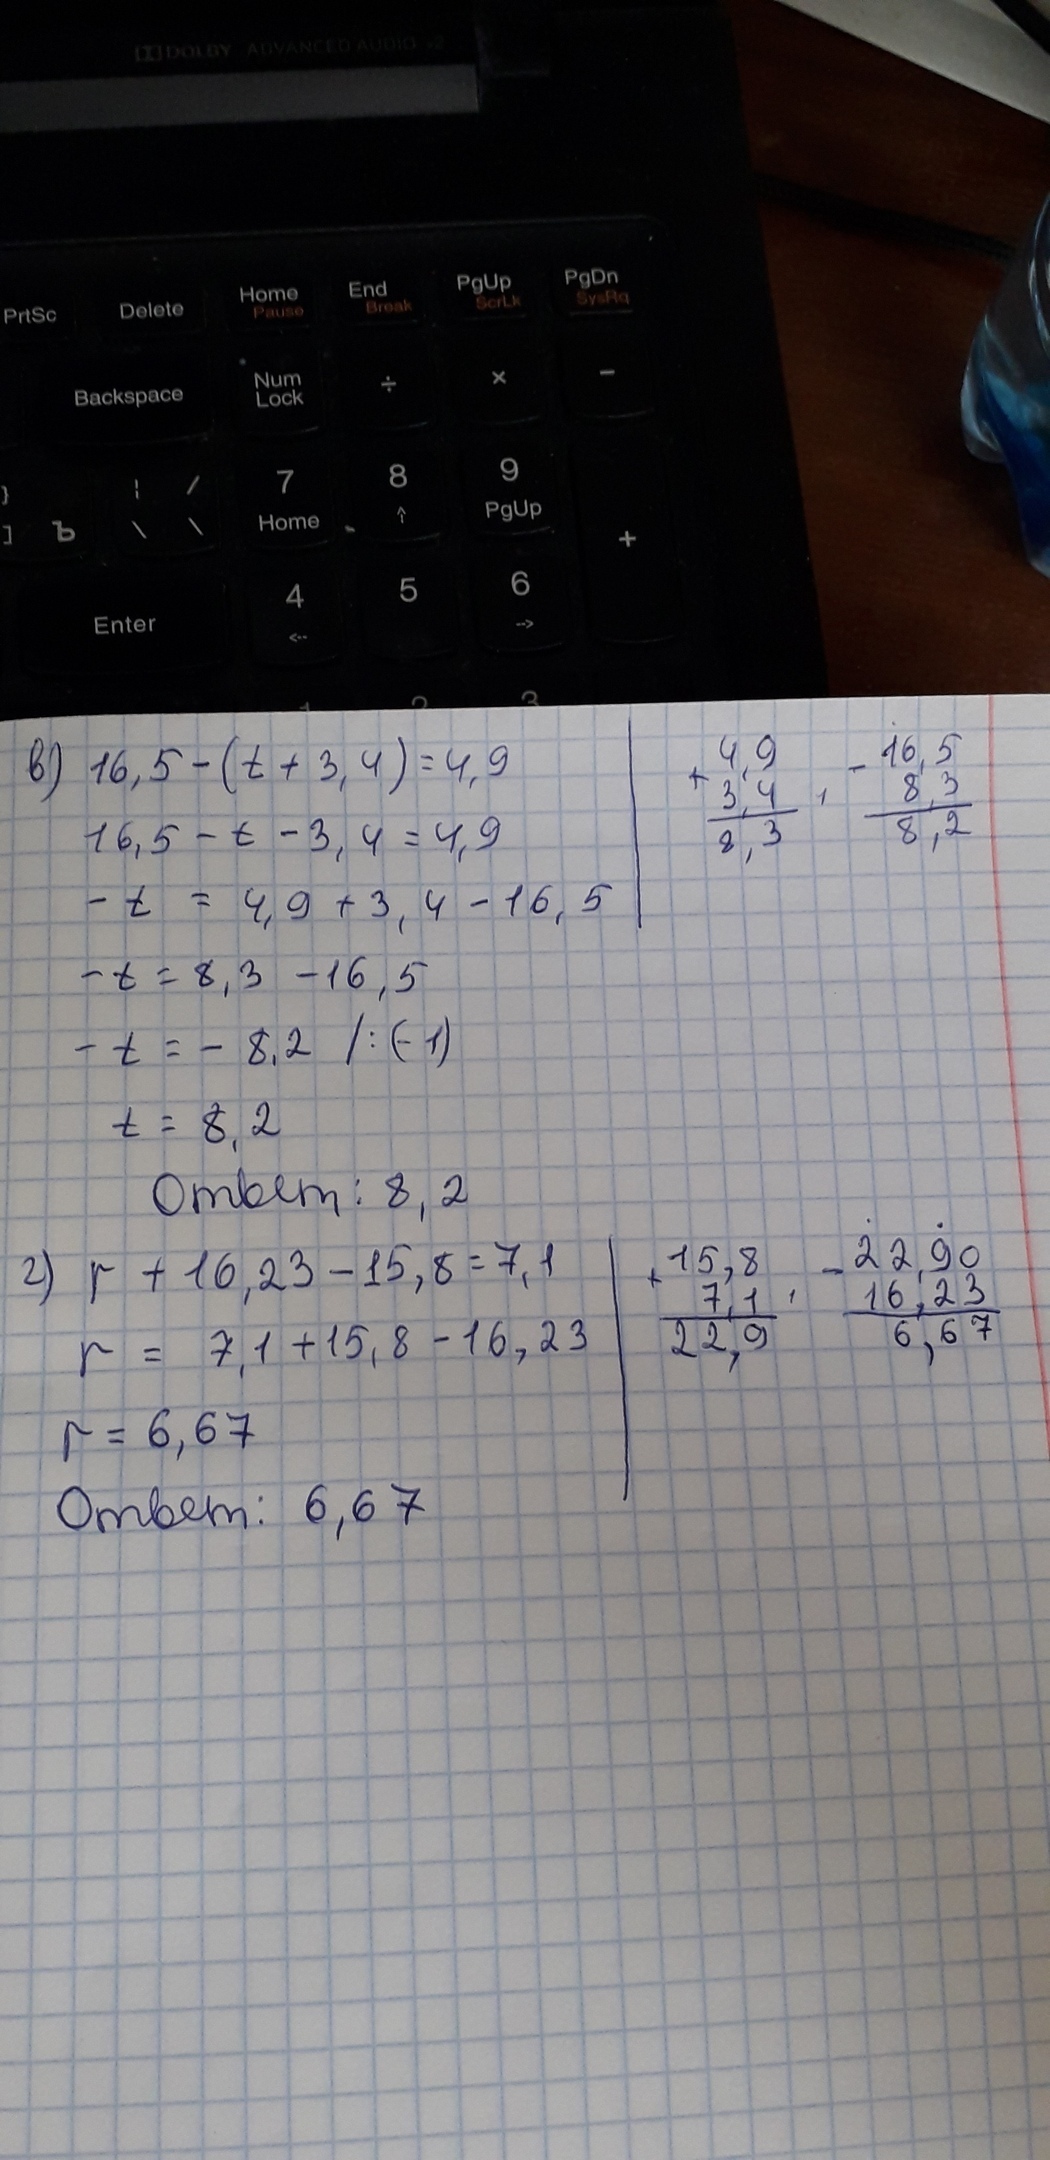 DOLBY ADVANCED AUDIO v2
PrtSc Delete Home End PgUp PgDn
Pause Break ScrLk SysRq
Backspace Num Lock ÷ × −
} ¦ / 7 8 9
] Ъ \ \ Home ↑ PgUp +
Enter 4 5 6
<-- -->
в) 16,5 - (t + 3,4) = 4,9
16,5 - t - 3,4 = 4,9
- t = 4,9 + 3,4 - 16,5
- t = 8,3 - 16,5
- t = - 8,2 /:(-1)
t = 8,2
Ответ: 8,2
+ 4,9
3,4 ,
8,3
- 16,5
8,3
8,2
г) r + 16,23 - 15,8 = 7,1
r = 7,1 + 15,8 - 16,23
r = 6,67
Ответ: 6,67
+ 15,8
7,1 ,
22,9
- 22,90
16,23
6,67